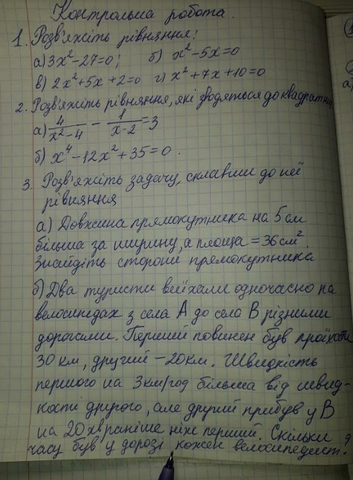 Контрольна робота.
1. Розв'яжіть рівняння:
а) 3x²-27=0; б) x²-5x=0
в) 2x²+5x+2=0 г) x²+7x+10=0
2. Розв'яжіть рівняння, які зводяться до квадратних
а) 4/(x²-4) - 1/(x-2) = 3
б) x⁴-12x²+35=0.
3. Розв'яжіть задачу, склавши до неї
рівняння
а) Довжина прямокутника на 5 см
більша за ширину, а площа = 36 см².
Знайдіть сторони прямокутника.
б) Два туристи виїхали одночасно на
велосипедах з села А до села В різними
дорогами. Перший повинен був проїхати
30 км, другий – 20км. Швидкість
першого на 3км/год більша від швид-
кості другого, але другий прибув у В
на 20хв раніше ніж перший. Скільки
часу був у дорозі кожен велосипедист?